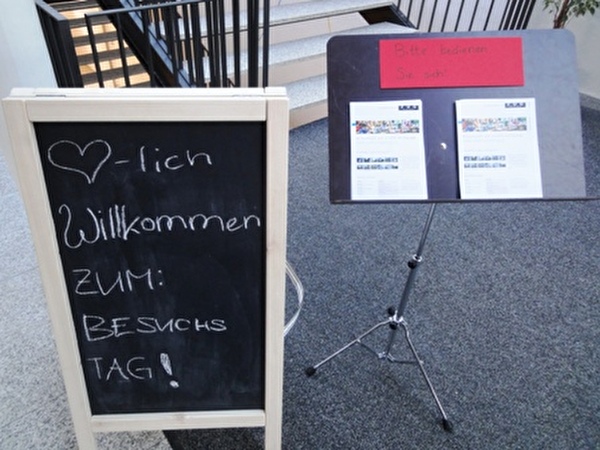 ♡-lich
Willkommen
ZUM:
BESUCHS
TAG!
Bitte bedienen
Sie sich